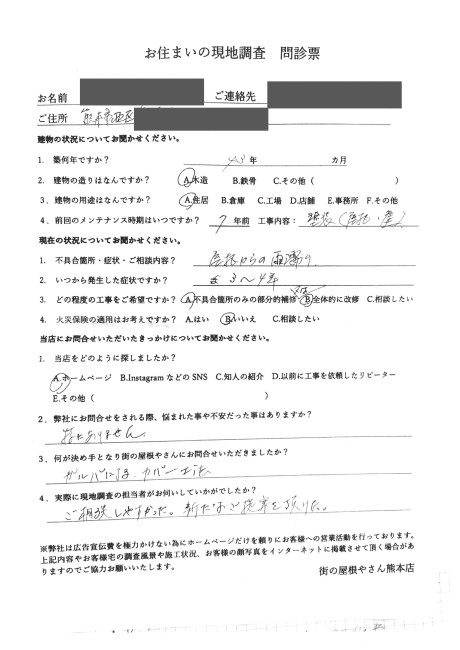 お住まいの現地調査　問診票
お名前　ご連絡先
ご住所　熊本市西区
建物の状況についてお聞かせください。
1. 築何年ですか？　年　カ月
2. 建物の造りはなんですか？　A.木造　B.鉄骨　C.その他（　）
3. 建物の用途はなんですか？　A.住居　B.倉庫　C.工場　D.店舗　E.事務所　F.その他
4. 前回のメンテナンス時期はいつですか？　7年前　工事内容：塗装（屋根・壁）
現在の状況についてお聞かせください。
1. 不具合箇所・症状・ご相談内容？　屋根からの雨漏り
2. いつから発生した症状ですか？　3〜4年
3. どの程度の工事をご希望ですか？　A.不具合箇所のみの部分的補修　B.全体的に改修　C.相談したい
4. 火災保険の適用はお考えですか？　A.はい　B.いいえ　C.相談したい
当店にお問合せいただいたきっかけについてお聞かせください。
1. 当店をどのように探しましたか？
A.ホームページ　B.InstagramなどのSNS　C.知人の紹介　D.以前に工事を依頼したリピーター
E.その他（　）
2. 弊社にお問合せをされる際、悩まれた事や不安だった事はありますか？
特にありません
3. 何が決め手となり街の屋根やさんにお問合せいただきましたか？
ガルバによる、カバー工法
4. 実際に現地調査の担当者がお伺いしていかがでしたか？
ご相談しやすかった。新たなご提案を頂けた。
※弊社は広告宣伝費を極力かけない為にホームページだけを頼りにお客様への営業活動を行っております。
上記内容やお客様宅の調査風景や施工状況、お客様の顔写真をインターネットに掲載させて頂く場合があ
りますのでご協力お願いいたします。
街の屋根やさん熊本店